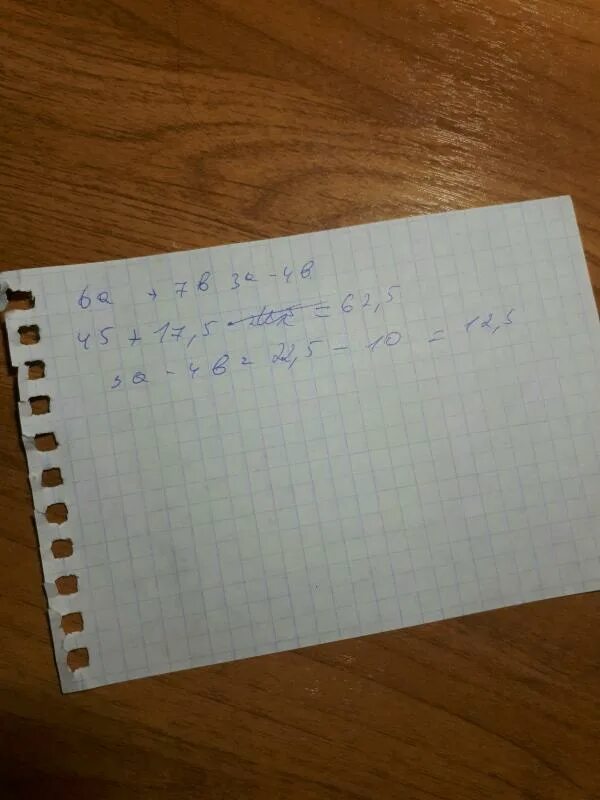 6a + 7в 3a - 4в
45 + 17,5 = 62,5
3a - 4в = 22,5 - 10 = 12,5